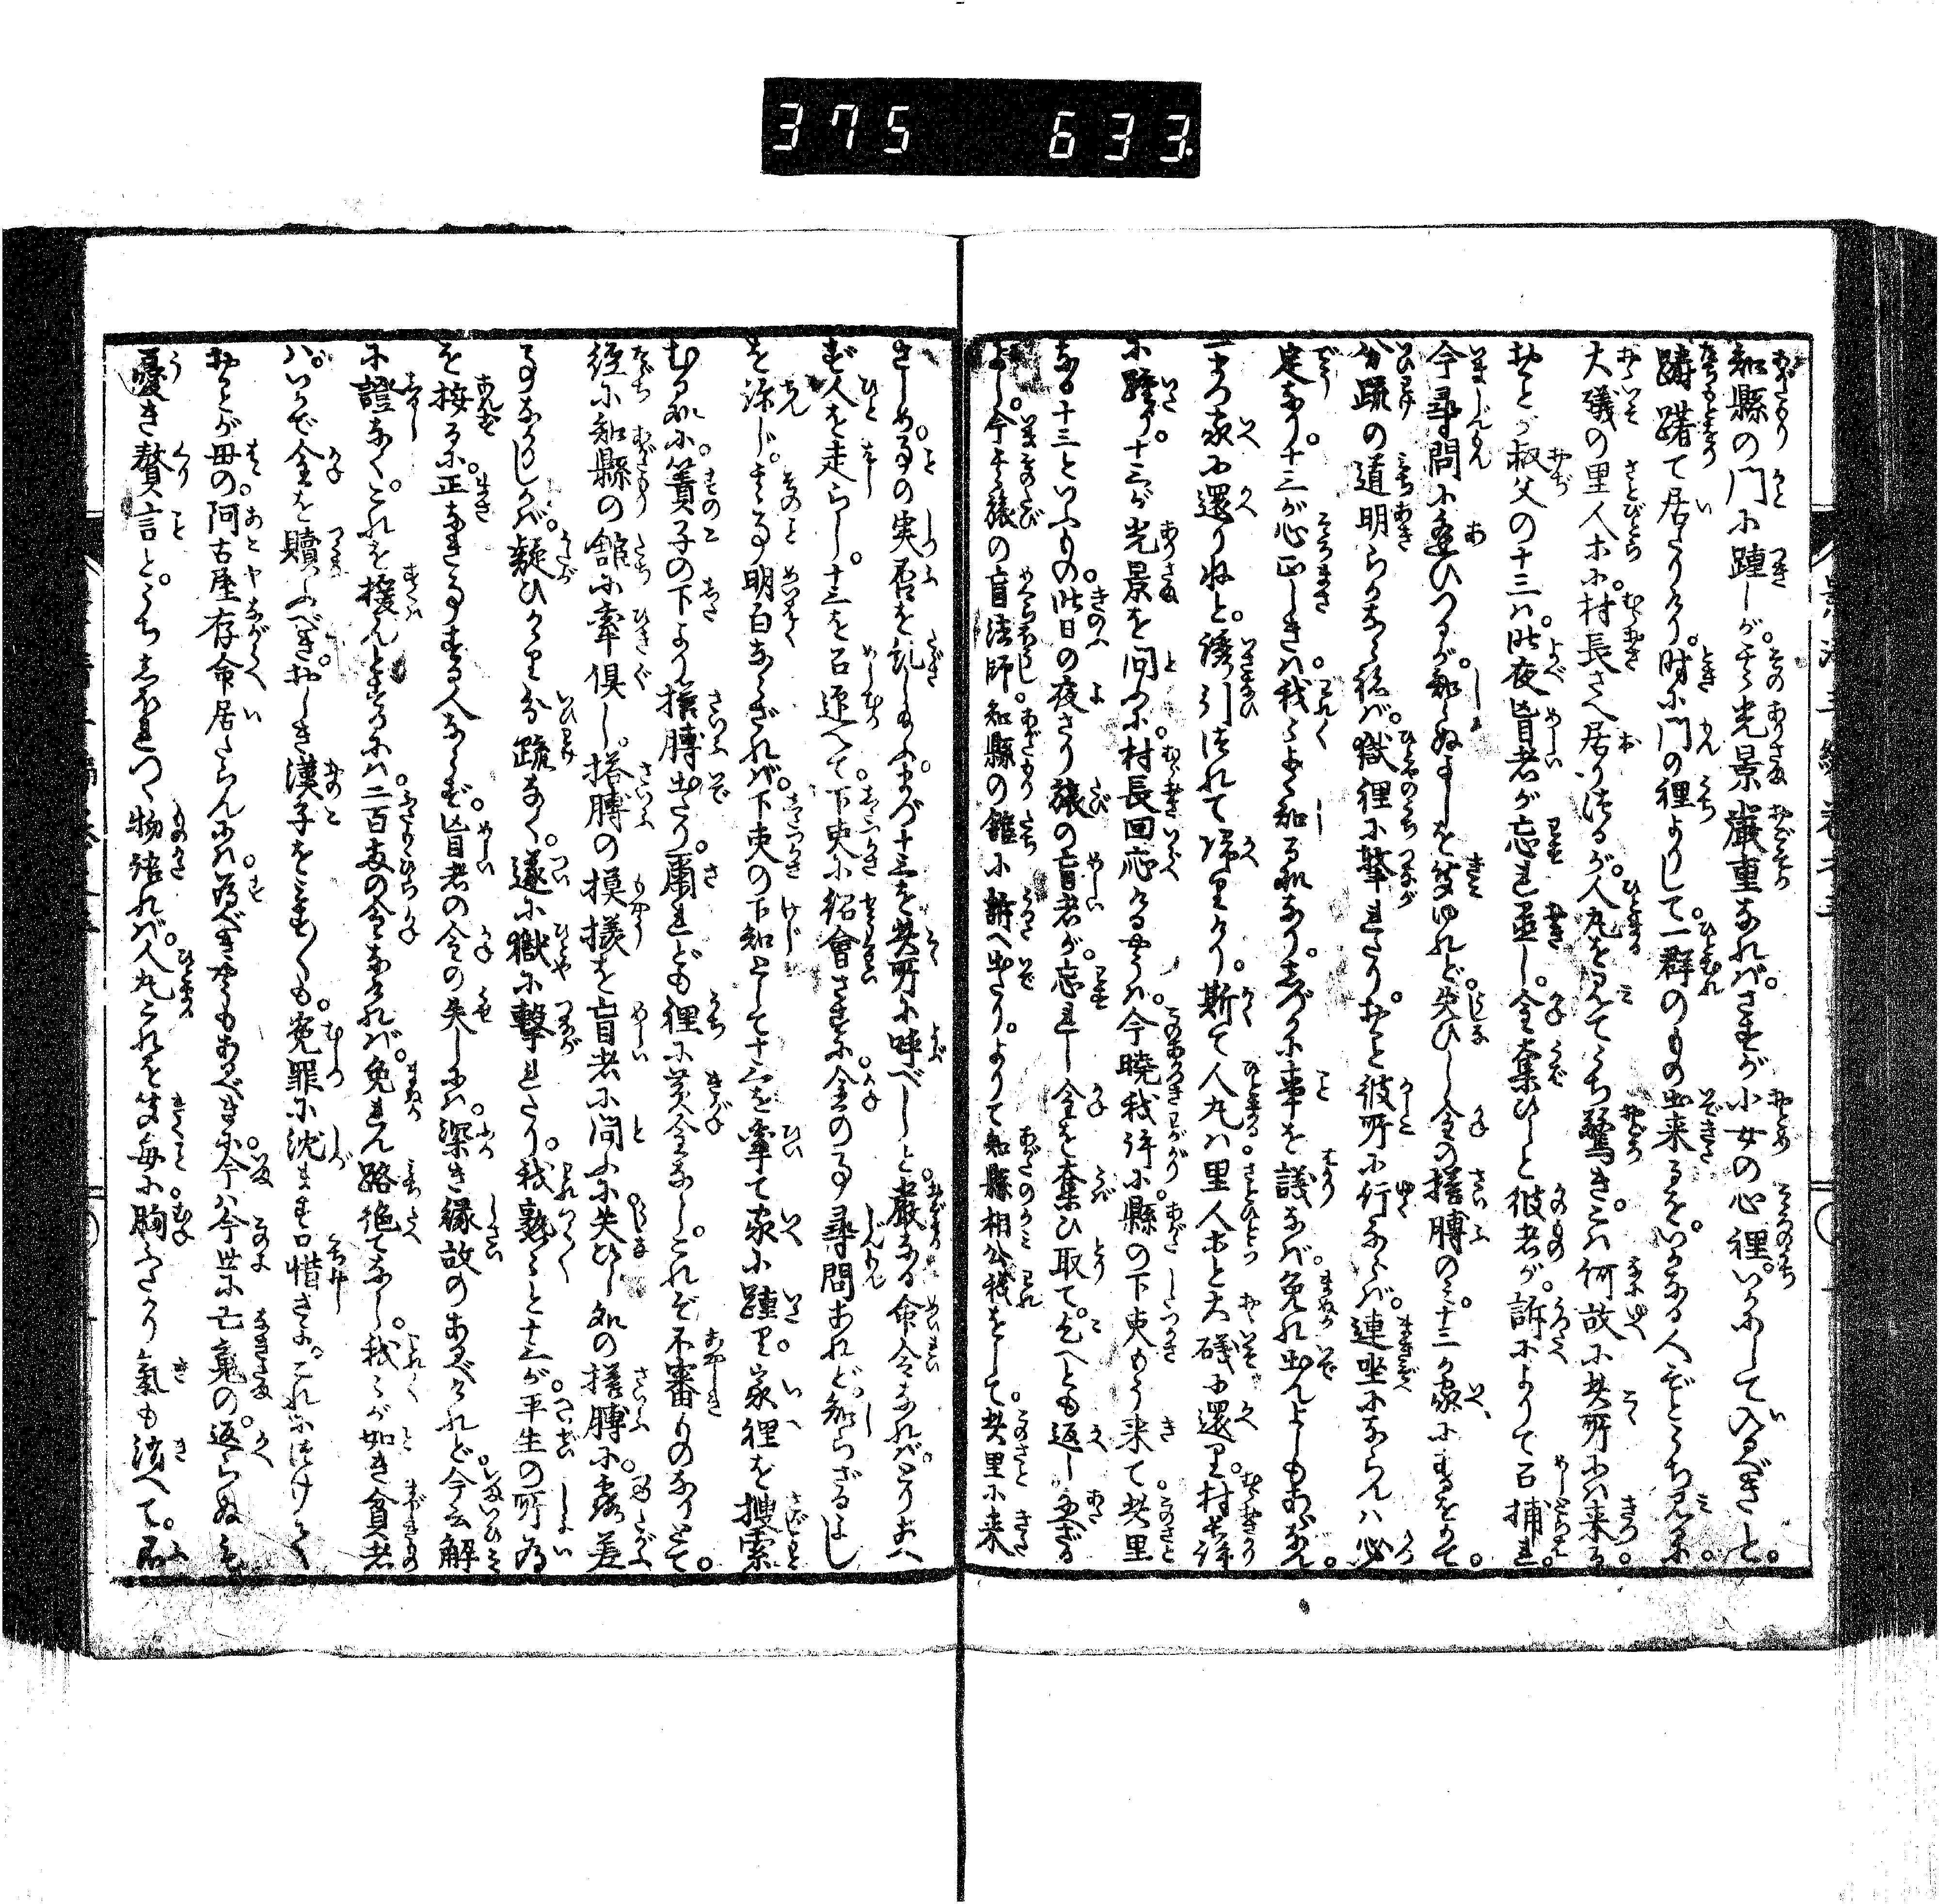 375 633
知縣の門に踵しが。其光景嚴重なれば。さすが小女の心裡。いかにして入るべきと。
躊躇て居たりけり。時に門の裡よりして。一群のもの出来るを。いかなる人ぞとうち見に。
大礒の里人ホに。村長さへ居りけるが。人丸を見てうち驚き。こは何故に其所には来る。
おとゞ叔父の十三は。昨夜盲者が忘れ置し。金奪ひしと彼者が。訴によりて召捕れ。
今尋問に逢ひつるが。知らぬよしを答ゆれど。失ひし金の搭膊のミ。十三が家にあるをもて。
分疏の道明らかならねば。獄裡に繋れたり。おと彼所に行ならば。連坐にならんは必
定なり。十三が心正しきは我々よく知る処なり。しづかに事を議なば。免れ出んよしもあなん。
一まづ家に還りねと。誘引つれて帰りけり。斯て人丸は里人ホと大礒に還り。村長許
に踵り。十三が光景を問ふに。村長回応けるやうは。今曉我許に縣の下吏もう来て。此里
なる十三といふもの。昨日の夜さり旅の盲者が。忘れし金を奪ひ取て。乞へども返し与ざる
よし。今其旅の盲法師。知縣の舘に訴へ出たり。よりて知縣相公我をして。此里に来
さしめ。事の実否を糺し給ふ。まづ十三を其所に呼べしと。嚴なる命令なれば。とりあへ
ず人を走らし。十三を召迎へて。下吏に紹會さするに。金の事尋問あれど。知らざるよし
を陳じ。其事明白ならざれば。下吏の下知として十三を牽て家に踵り。家裡を搜索
むる処に。簀子の下より搭膊出たり。爾れども裡に黄金なし。これぞ不審ものなりとて。
径に知縣の舘に牽俱し。搭膊の摸様を盲者に問ふに。失ひし処の搭膊に。露差
事なかりしかば。疑ひかゝり分疏なく。遂に獄に繋れたり。我熟々と十三が。平生の所為
を按るに。正なき事する人ならず。盲者の金の失しには。深き縁故のあるべけれど。今云解
に證なく。これを援んとするには。二百両の金なければ。免れん路絶てなし。我々が如き貧者
は。いかで金を贖ふべき。おしき漢子をみす〳〵も。冤罪に沈ます口惜さよ。これにつけても
おとが毋の。阿古屋存命居たらんには。為べきやうもあるべきに。今は今世に亡魂の。返らぬ
憂き贅言と。うちしほれつゝ物語れば。人丸これを聞毎に胸ふたがり氣も消へて。不